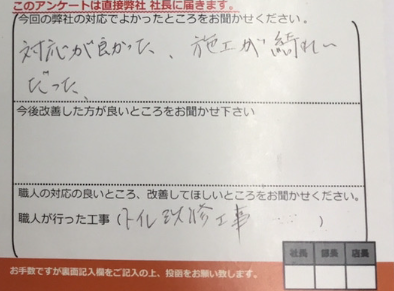 このアンケートは直接弊社 社長に届きます。
今回の弊社の対応でよかったところをお聞かせください。
対応が良かった、施工が綺れい
だった
今後改善した方が良いところをお聞かせ下さい
職人の対応の良いところ、改善してほしいところをお聞かせください。
職人が行った工事(トイレ改修工事 … )
社長 部長 店長
お手数ですが裏面記入欄をご記入の上、投函をお願い致します。